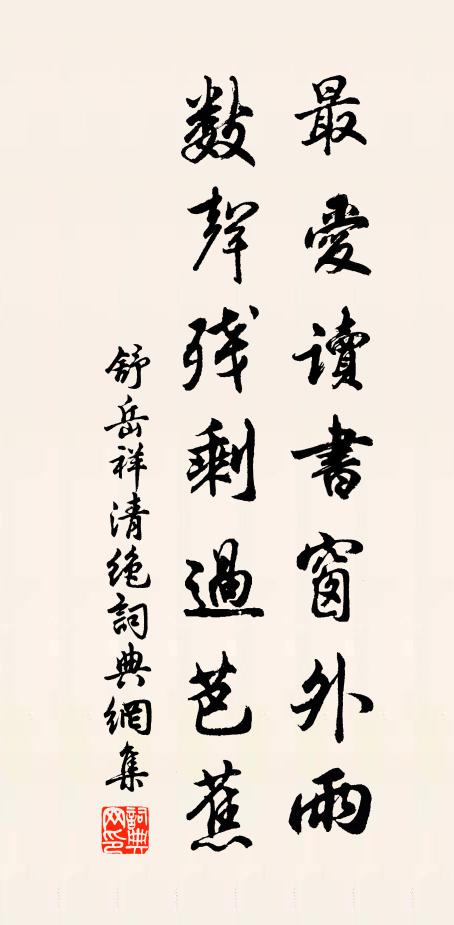 最愛讀書窗外雨
數聲殘剩過芭蕉
舒岳祥清絶詞典網集
詞典網印